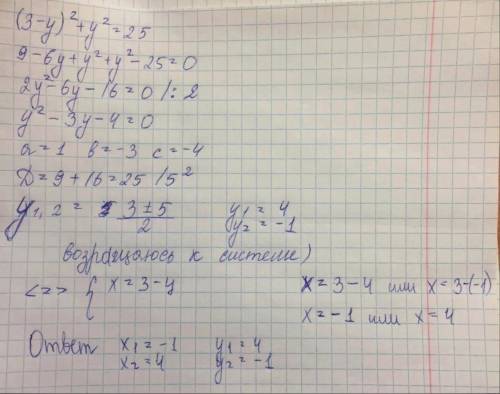 (3-y)²+y²=25
9-6y+y²+y²-25=0
2y²-6y-16=0 /: 2
y²-3y-4=0
a=1 в=-3 c=-4
D=9+16=25 /5²
y₁,₂ = (3±5)/2 y₁=4 y₂=-1
возращаюсь к системе)
<=> { x=3-y x=3-4 или x=3-(-1)
x=-1 или x=4
Ответ x₁=-1 y₁=4
x₂=4 y₂=-1